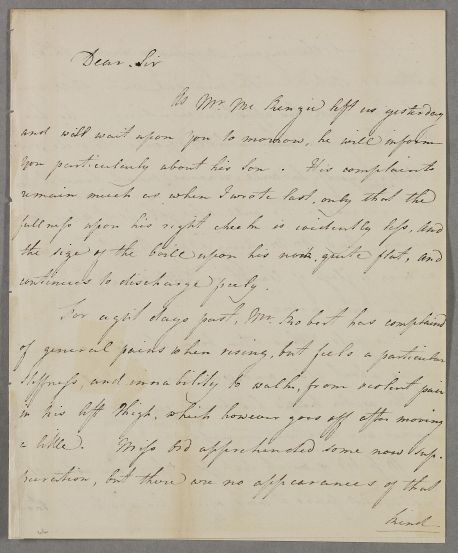 Dear Sir
As Mr. Mc Kenzie left us yesterday
and will wait upon you to morrow, he will inform
you particularly about his son. His complaints
remain much as when I wrote last, only that the
fullness upon his right cheek is evidently less, and
the size of the boil upon his quite flat, and
continues to discharge freely.
For eight days past, Mr. Robert has complained
of general pains when rising, but feels a particular
stiffness, and inability to walk, from violent pain
in his left Thigh, which however goes off after moving
a little. Miss apprehended some new sup-
puration, but there are no appearances of that
kind